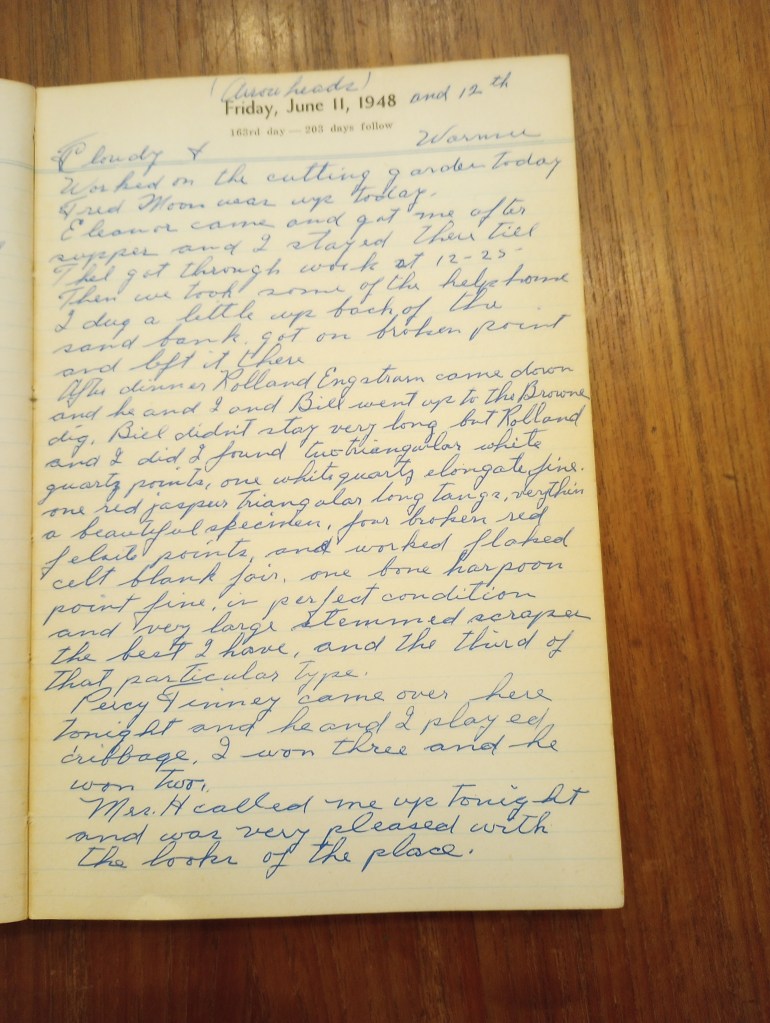 (Arrowheads)
Friday, June 11, 1948 and 12th
163rd day — 203 days follow
Cloudy & Warmer
Worked on the cutting garden today
Fred Moon was up today.
Eleanor came and got me after
supper and I stayed there till
Thel got through work at 12-25
Then we took some of the help home
I dug a little up back of the
sand bank. got on broken point
and left it there
After dinner Rolland Engstrom came down
and he and I and Bill went up to the Browne
dig. Bill didn't stay very long but Rolland
and I did I found two triangular white
quartz points, one white quartz elongate, fine.
one red jasper triangular long tangs, very thin
a beautiful specimen, four broken red
felsite points, and worked flaked
celt blank fair. one bone harpoon
point fine, in perfect condition
and very large stemmed scraper
the best I have, and the third of
that particular type.
Percy Finney came over here
tonight and he and I played
cribbage. I won three and he
won two.
Mrs. H called me up tonight
and was very pleased with
the looks of the place.